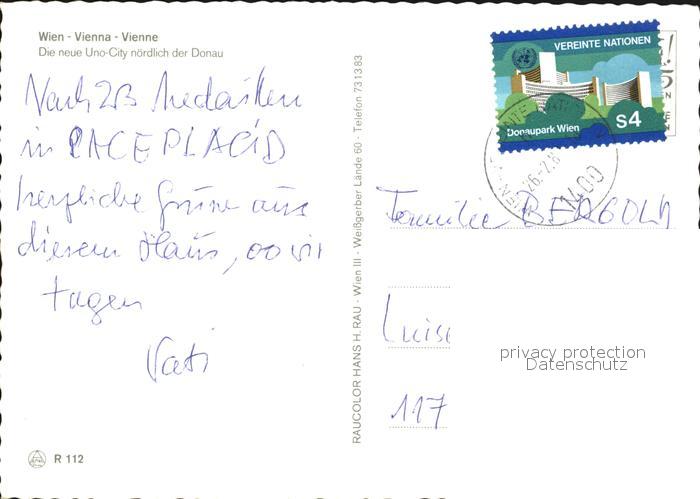 Wien - Vienna - Vienne
Die neue Uno-City nördlich der Donau
Nach 2B Medaillen
in LACEPLACID
herzliche Grüsse aus
diesem Haus, wo wir
tagen
Vati
R 112
RAUCOLOR HANS H. RAU - Wien III - Weißgerber Lände 60 - Telefon 73 13 83
VEREINTE NATIONEN
Donaupark Wien
S4
1400
Familie
Luise
117
privacy protection
Datenschutz